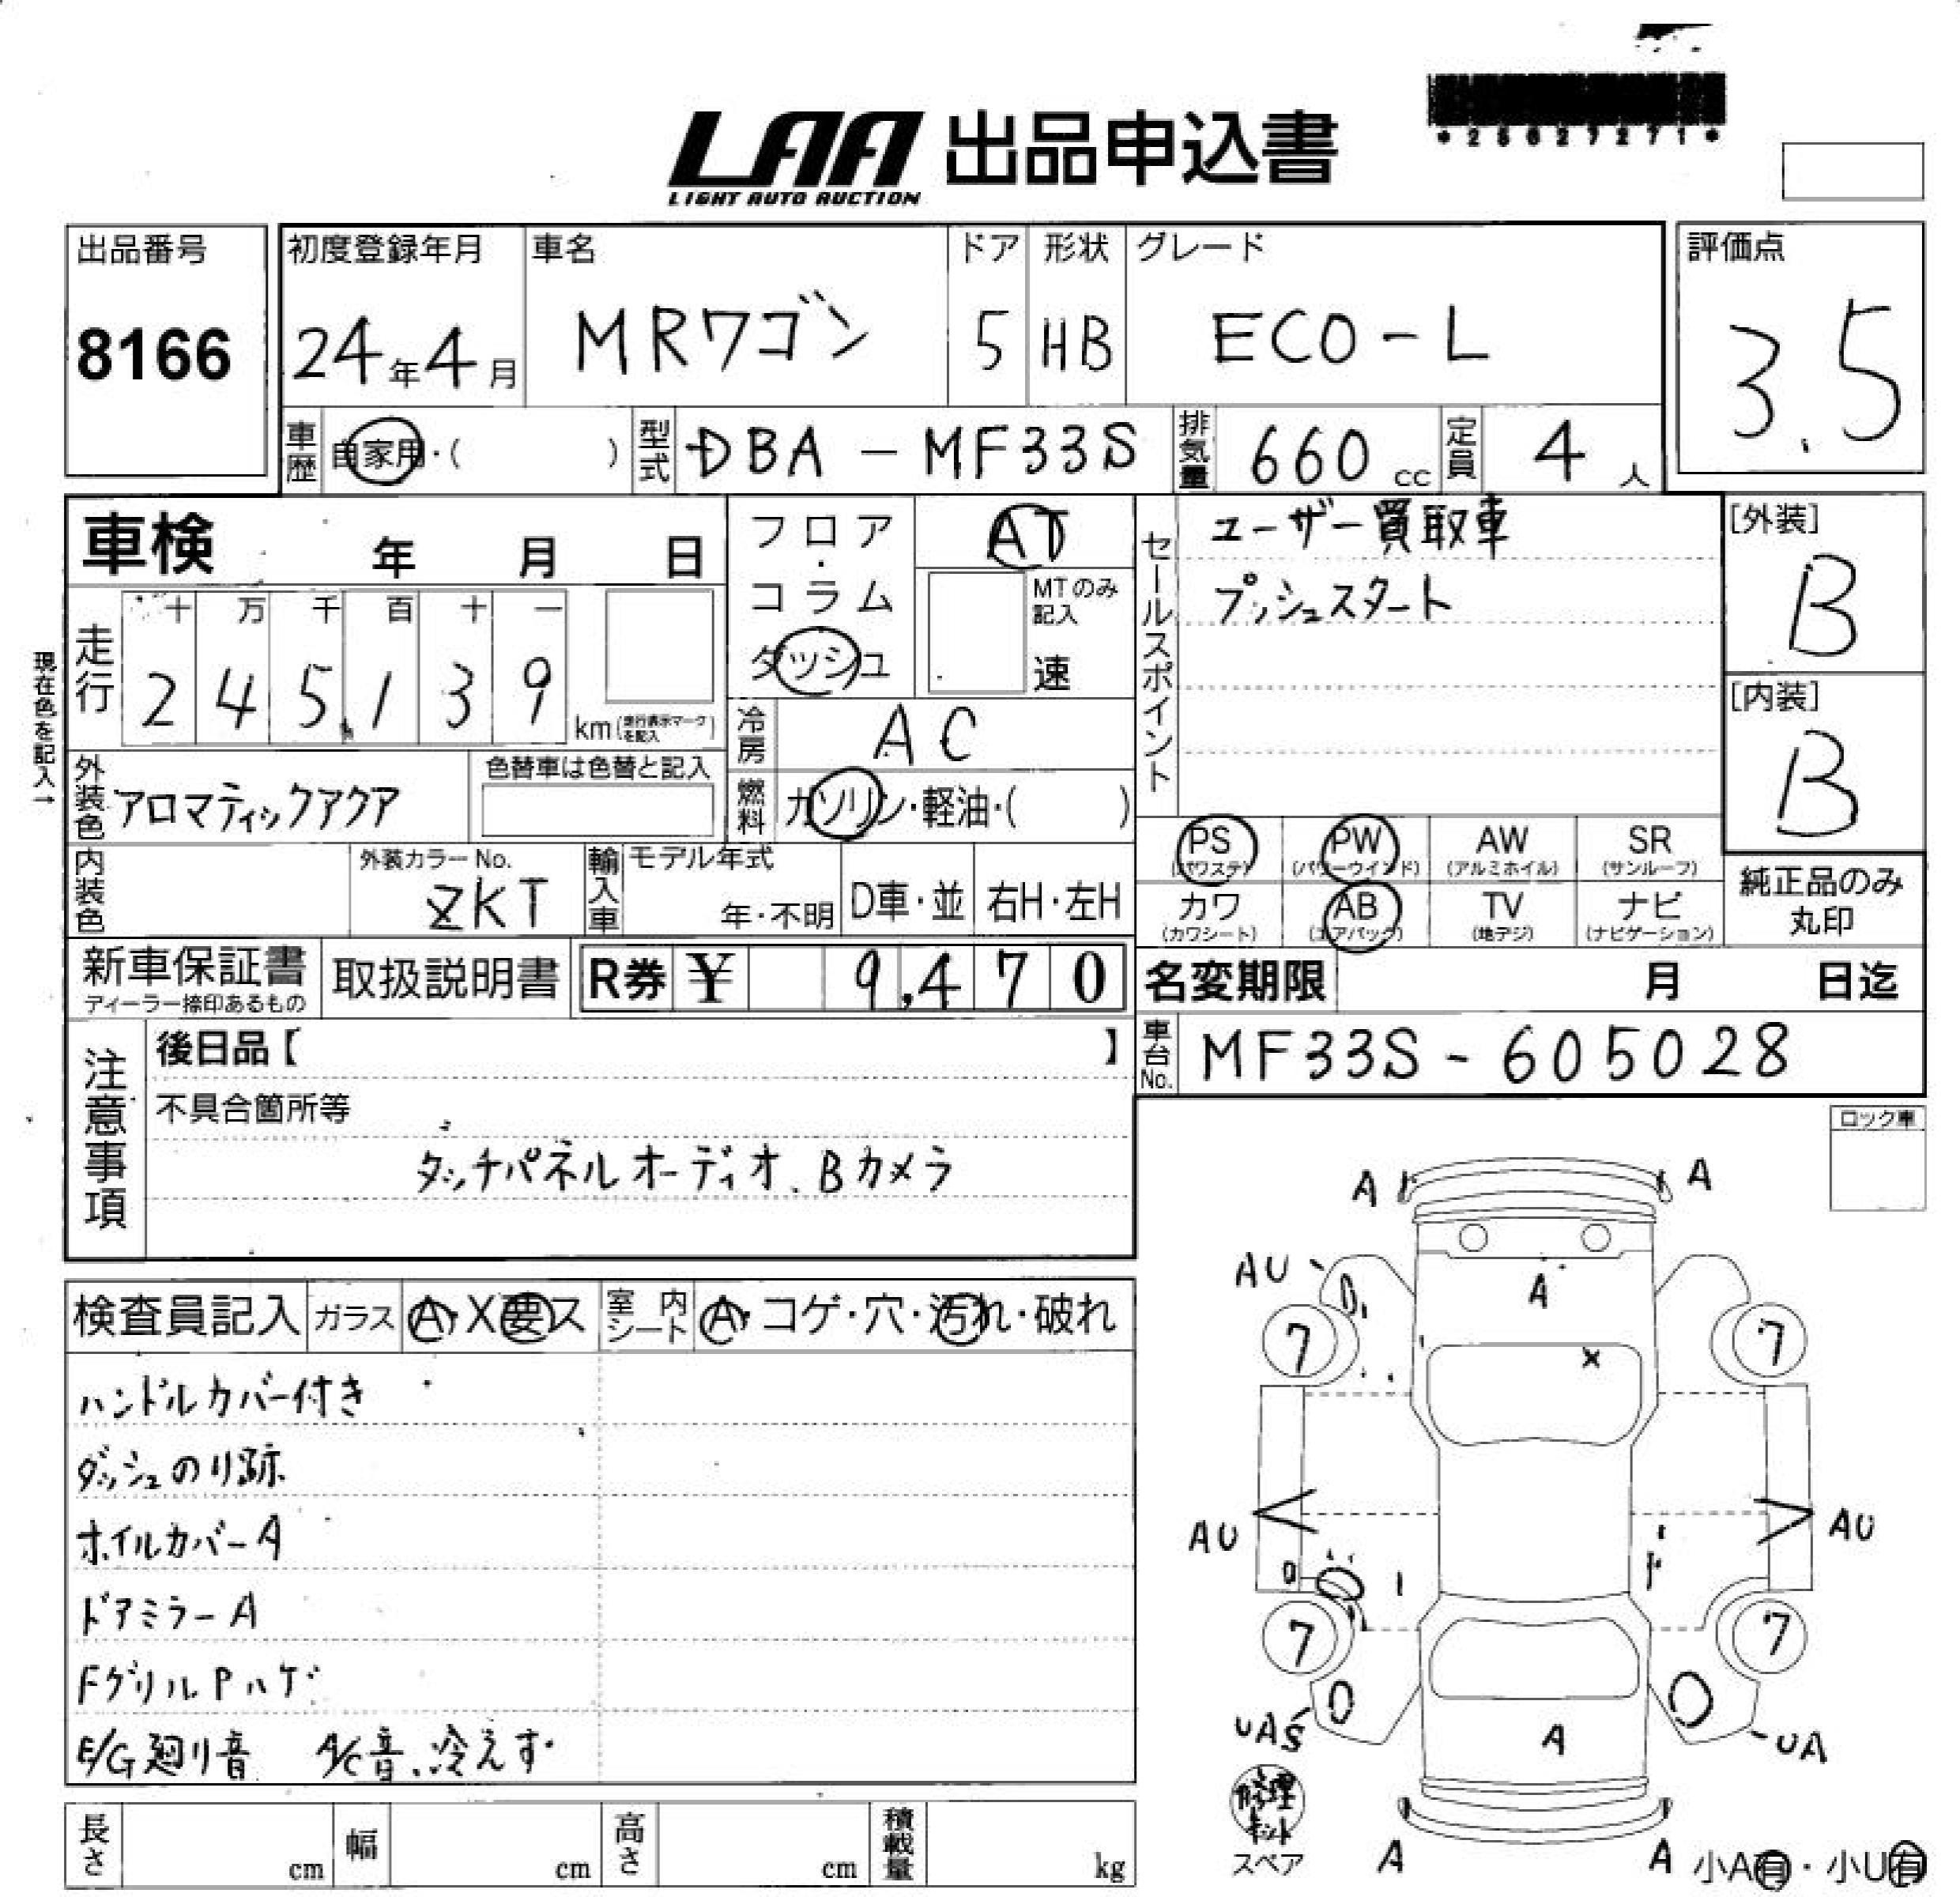 *25027271*
LAA 出品申込書
LIGHT AUTO AUCTION
出品番号
8166
初度登録年月
24年4月
車名
MRワゴン
ドア
5
形状
HB
グレード
ECO-L
評価点
3.5
車歴 自家用・( )
型式 DBA-MF33S
排気量 660 cc
定員 4人
車検 年 月 日
フロア・コラム ダッシュ
AT
MTのみ記入
速
セールスポイント
ユーザー買取車
プッシュスタート
[外装]
B
[内装]
B
現在色を記入→
走行
十 万 千 百 十 一
2 4 5,1 3 9 km(走行表示マークを記入)
冷房 AC
外装色 アロマティックアクア
色替車は色替と記入
燃料 ガソリン・軽油・( )
内装色
外装カラーNo.
ZKT
輸入車
モデル年式
年・不明
D車・並
右H・左H
PS (パワステ)
PW (パワーウインド)
AW (アルミホイル)
SR (サンルーフ)
カワ (カワシート)
AB (エアバック)
TV (地デジ)
ナビ (ナビゲーション)
純正品のみ丸印
新車保証書
ディーラー捺印あるもの
取扱説明書
R券 ¥ 9,470
名変期限 月 日迄
車台No. MF33S-605028
注意事項
後日品【 】
不具合箇所等
タッチパネルオーディオ、Bカメラ
ロック車
検査員記入
ガラス A・X要ス
室内シート A・コゲ・穴・汚れ・破れ
ハンドルカバー付き
ダッシュのり跡
ホイルカバーA
ドアミラーA
FグリルPハゲ
E/G廻り音 A/C音、冷えず
A A
AU
A
7 7
X
AU AU
7 7
UAS
A
UA
修理キット
スペア
A A
小A有・小U有
長さ cm
幅 cm
高さ cm
積載量 kg